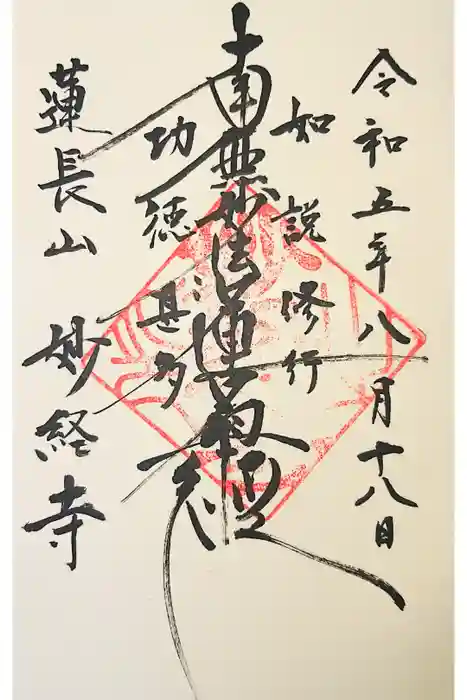 令和五年八月十八日
如説修行
南無妙法蓮華経
功徳甚多
蓮長山 妙経寺